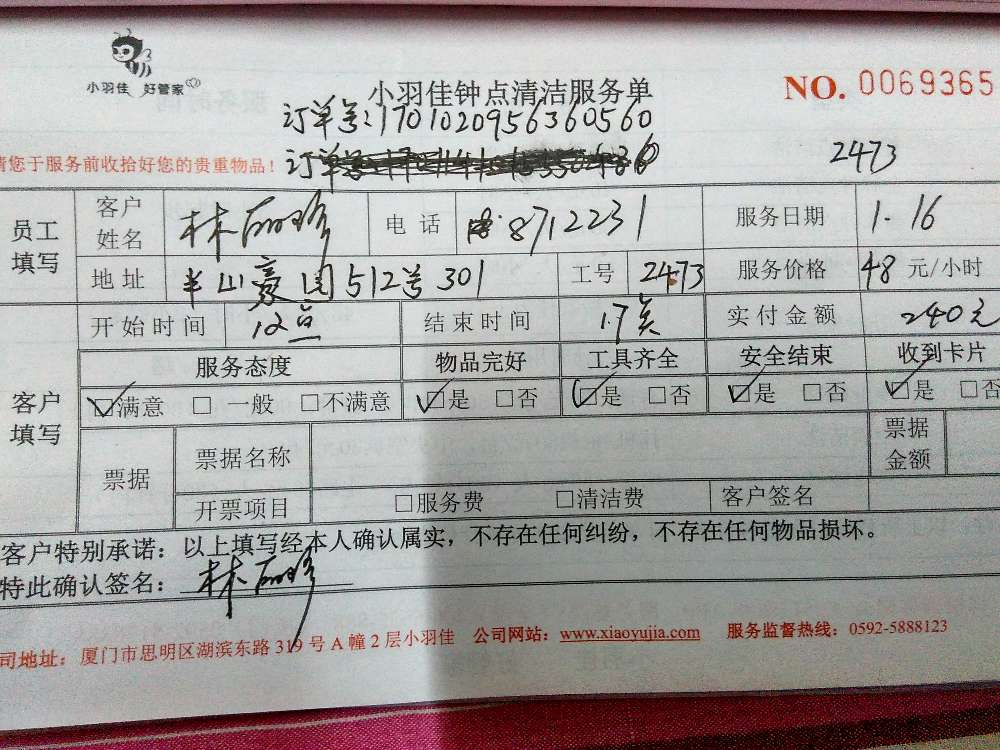 小羽佳 好管家
小羽佳钟点清洁服务单
NO. 0069365
订单号:1701020956360560
订单号
2473
请您于服务前收拾好您的贵重物品!
员工填写 客户姓名 林丽珍 电话 8712231 服务日期 1.16
地址 半山豪园512号301 工号 2473 服务价格 48 元/小时
客户填写 开始时间 12点 结束时间 17点 实付金额 240元
服务态度 物品完好 工具齐全 安全结束 收到卡片
☑满意 □一般 □不满意 ☑是 □否 ☑是 □否 ☑是 □否 ☑是 □否
票据 票据名称 票据金额
开票项目 □服务费 □清洁费 客户签名
客户特别承诺:以上填写经本人确认属实,不存在任何纠纷,不存在任何物品损坏。
特此确认签名:林丽珍
司地址:厦门市思明区湖滨东路319号A幢2层小羽佳 公司网站:www.xiaoyujia.com 服务监督热线:0592-5888123